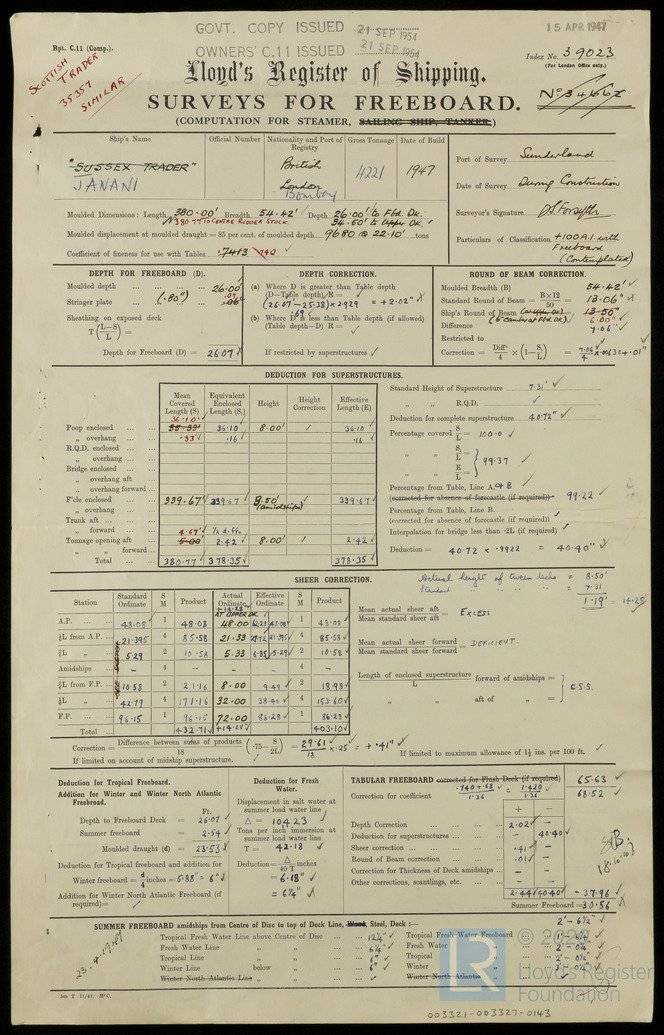 GOVT. COPY ISSUED 21 SEP 1954
15 APR 1947
Rpt. C.11 (Comp.).
OWNERS' C.11 ISSUED 21 SEP 1954
Index No. 39023
(For London Office only.)
SCOTTISH TRADER
35357
SIMILAR
Lloyd's Register of Shipping.
SURVEYS FOR FREEBOARD.
(COMPUTATION FOR STEAMER, SAILING SHIP, TANKER.)
Ship's Name
Official Number
Nationality and Port of Registry
Gross Tonnage
Date of Build
"SUSSEX TRADER"
JANANI
British
London
Bombay
4221
1947
Port of Survey Sunderland
Date of Survey During Construction
Surveyor's Signature
Particulars of Classification +100A.1. with Freeboard (Contemplated)
Moulded Dimensions: Length 380.00' Breadth 54.42' Depth 26.00' to Fbd. Dk.
380.77 TO CENTRE RUDDER STOCK. 34.50' to Upper Dk.
Moulded displacement at moulded draught = 85 per cent. of moulded depth 9680 @ 22.10' tons
Coefficient of fineness for use with Tables .7413 .740
DEPTH FOR FREEBOARD (D).
Moulded depth 26.00'
Stringer plate (.80") .07
Sheathing on exposed deck
T (L-S/L) =
Depth for Freeboard (D) = 26.07
DEPTH CORRECTION.
(a) Where D is greater than Table depth
(D—Table depth) R =
(26.07 - 25.38) × 2.929 = +2.02"
.69
(b) Where D is less than Table depth (if allowed)
(Table depth—D) R =
If restricted by superstructures
ROUND OF BEAM CORRECTION.
Moulded Breadth (B) 54.42'
Standard Round of Beam = B×12/50 = 13.06"
Ship's Round of Beam (at Upper Dk) = 13.50"
(6" camber at Fbd. Dk.) 6.00"
Difference 7.06"
Restricted to
Correction = Diff/4 × (1 - S₁/L) = 7.06/4 × .0063 = +.01"
DEDUCTION FOR SUPERSTRUCTURES.
Mean Covered Length (S)
Equivalent Enclosed Length (S₁)
Height
Height Correction
Effective Length (E)
36.10'
Poop enclosed 35.33' 36.10 8.00' 36.10
„ overhang .33' .16 .16
R.Q.D. enclosed
„ overhang
Bridge enclosed
„ overhang aft
„ overhang forward
F'cle enclosed 339.67' 339.67 8.50' (Amidships) 339.67
„ overhang
Trunk aft
„ forward 4.67' ½ diff.
Tonnage opening aft 5.00' 2.42 8.00' 2.42
„ „ forward
Total 380.77 378.35 378.35
Standard Height of Superstructure 7.31'
„ „ R.Q.D.
Deduction for complete superstructure 40.72"
Percentage covered S/L = 100.0
„ „ S₁/L =
„ „ E/L = 99.37
Percentage from Table, Line A. + B
(corrected for absence of forecastle (if required)) 99.22
Percentage from Table, Line B.
(corrected for absence of forecastle (if required))
Interpolation for bridge less than .2L (if required)
Deduction = 40.72 × .9922 = 40.40"
SHEER CORRECTION.
Actual height of tween decks = 8.50'
Standard „ „ „ = 7.31
1.19' = 14.28"
Station
Standard Ordinate
S M
Product
Actual Ordinate
Effective Ordinate
S M
Product
+14.28"
AT UPPER DK.
A.P. 48.08 1 48.08 48.00 1 48.00
⅙L from A.P. 21.395 4 85.58 21.33 21.395 4 85.58
⅓L „ 5.29 2 10.58 5.33 5.29 2 10.58
Amidships — 4 — — — 4 —
⅓L from F.P. 10.58 2 21.16 8.00 9.49 2 18.98
⅙L „ 42.79 4 171.16 32.00 38.40 4 153.60
F.P. 96.15 1 96.15 72.00 86.28 1 86.28
Total 432.71 +14.28 403.10
Mean actual sheer aft / Mean standard sheer aft = EXCESS
Mean actual sheer forward / Mean standard sheer forward = DEFICIENT
Length of enclosed superstructure / L forward of amidships =
„ „ aft of „ = C.S.S.
Correction = Difference between sums of products / 18 (.75 - S/2L) = 29.61/18 × .25 = +.41"
If limited on account of midship superstructure.
If limited to maximum allowance of 1½ ins. per 100 ft.
Deduction for Tropical Freeboard.
Addition for Winter and Winter North Atlantic Freeboard.
Ft.
Depth to Freeboard Deck = 26.07
Summer freeboard = 2.54
Moulded draught (d) = 23.53
Deduction for Tropical freeboard and addition for
Winter freeboard = d/4 inches = 5.88" = 6"
Addition for Winter North Atlantic Freeboard (if required) =
Deduction for Fresh Water.
Displacement in salt water at summer load water line
Δ = 10423
Tons per inch immersion at summer load water line
T = 42.18
Deduction = Δ/40 T inches
= 6.18"
= 6¼"
TABULAR FREEBOARD corrected for Flush Deck (if required) 65.63
Correction for coefficient .740+.68/1.36 = 1.420/1.36 68.52
+ —
Depth Correction 2.02 —
Deduction for superstructures — 40.40
Sheer correction .41 —
Round of Beam correction .01 —
Correction for Thickness of Deck amidships — —
Other corrections, scantlings, etc. — —
2.44 40.40 = 37.96
Summer Freeboard = 30.56
SUMMER FREEBOARD amidships from Centre of Disc to top of Deck Line, Wood, Steel, Deck :— 2'- 6½"
Tropical Fresh Water Line above Centre of Disc 12¼"
Fresh Water Line „ „ 6¼"
Tropical Line „ „ 6"
Winter Line below „ 6"
Winter North Atlantic Line „ „
Tropical Fresh Water Freeboard 1'- 6¼"
Fresh Water „ 2'- 0¼"
Tropical „ 2'- 0½"
Winter „ 3'- 0½"
Winter North Atlantic „
23.4.1947
© 2020
LR
Lloyd's Register Foundation
003321-003327-0143